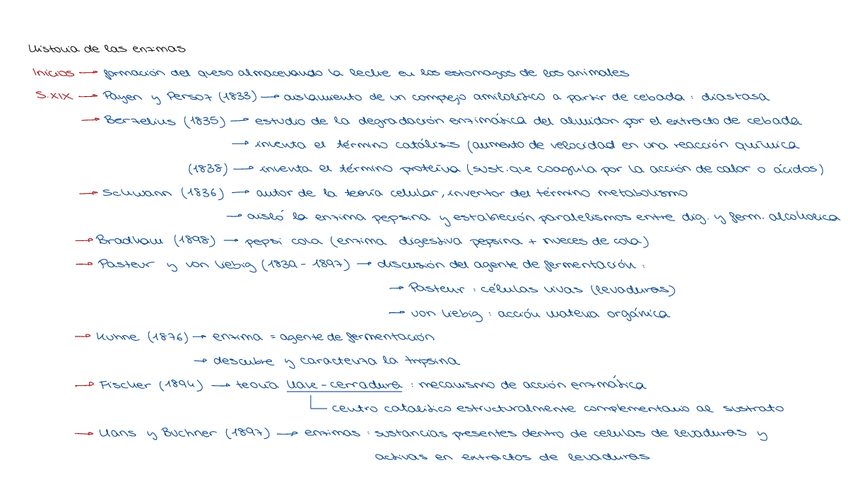 Historia de las enzimas
Inicios → formación del queso almacenando la leche en los estomagos de los animales
S.XIX → Payen y Persoz (1833) → aislamiento de un complejo amilolítico a partir de cebada : diastasa
→ Berzelius (1835) → estudio de la degradación enzimática del almidon por el extracto de cebada
→ inventa el término catálisis (aumento de velocidad en una reacción química
(1838) → inventa el término proteína (sust. que coagula por la acción de calor o ácidos)
→ Schwann (1836) → autor de la teoría celular, inventor del término metabolismo
→ aisló la enzima pepsina y estableción paralelismos entre dig. y ferm. alcoholica
→ Bradhaw (1898) → pepsi cola (enzima digestiva pepsina + nueces de cola)
→ Pasteur y von Liebig (1839 - 1897) → discusión del agente de fermentación :
→ Pasteur : células vivas (levaduras)
→ von Liebig : acción materia orgánica
→ Kuhne (1876) → enzima = agente de fermentación
→ descubre y caracteriza la tripsina
→ Fischer (1894) → teoría llave - cerradura : mecanismo de acción enzimática
centro catalítico estructuralmente complementario al sustrato
→ Hans y Buchner (1897) → enzimas : sustancias presentes dentro de celulas de levaduras y
activas en extractos de levaduras